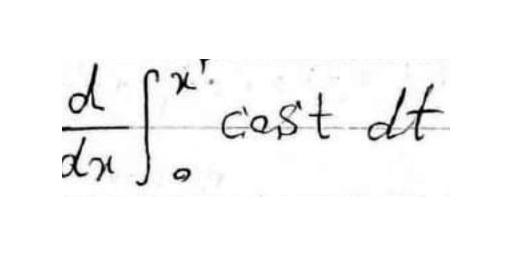 d/dx ∫₀ˣ cos t dt